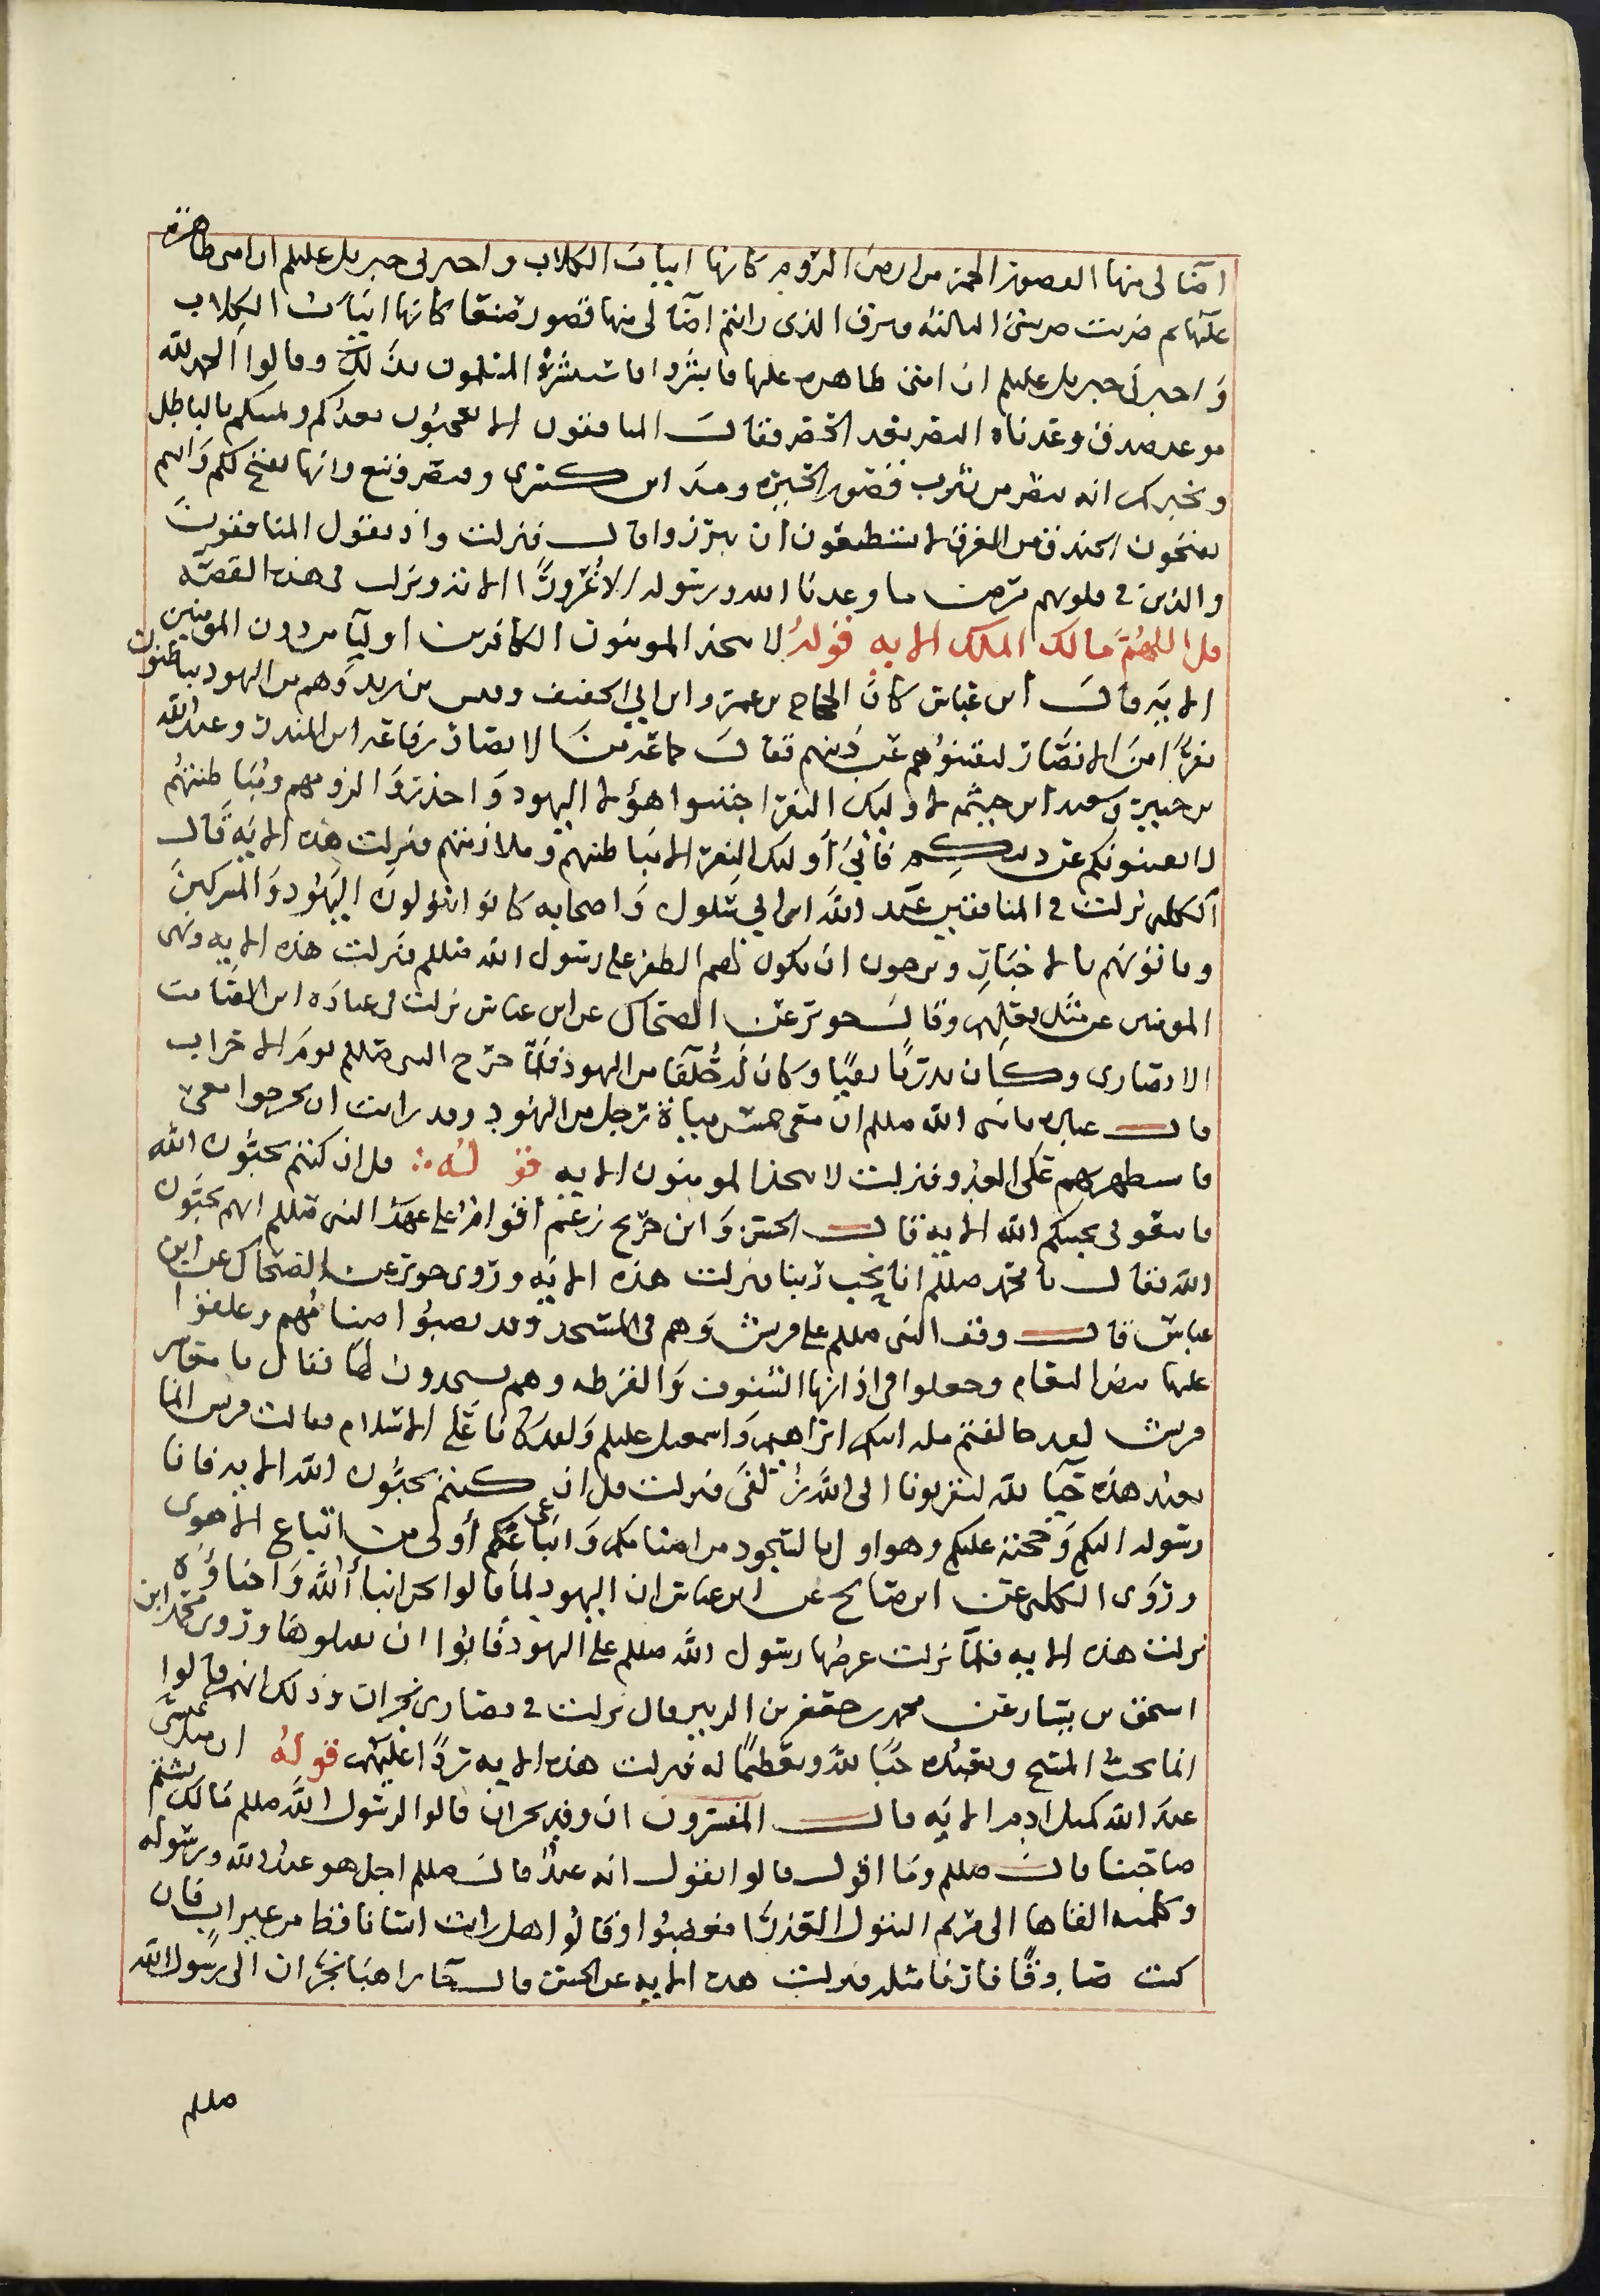 اضا لى منها القصور الحمر من ارض الروم كانها انياب الكلاب واخبرنى جبريل عليلم ان امتى ظاهرة
عليها ثم ضربت ضربتى الثالثه فبرق الذى رايتم اضآ لى منها قصور صنعا كانها انياب الكِلاب
وَاخبرنى جبريل عليلم ان امتى ظاهره عليها فابشروا فاستبشرَ المسلمون بذلك وقالوا الحمد لله
موعد صدق وعدناه النصر بعد الحصر فقال المنافقون الا تعجبُون يعدكم ويمنيكم بالباطل
ويخبركم انه يبصر من يثرب قصور الحيره ومدَاين كسرى وقصر وانها تفتح لكم وَانتم
تحفرون الخندق من الفرق لا تستطيعون ان تبرزوا قال فنزلت واذ يقول المنافقونَ
والذين فى قلوبهم مرض ما وعدنا الله ورسوله الا غُرورًا الايه ونزل فى هذه القصّه
قل اللهُمَّ مَالك الملك الايه قوله لا يتخذ المومنون الكافرين اوليآ من دون المومنين
الايَه قال ابن عبّاس كانَ الحجاج بن عمرو وابن ابى الحقيق وقيس بن زيد وَهم من اليهود يباطنون
نفرًا منَ الانصَار ليفتنوُهم عن دينهم فقال رفاعه ابن المنذر وعبدالله
بن جبير وَسعد ابن خيثمه لاوليك النفر اجتنبوا هؤلا اليهود وَاحذروا لزومهم ومُباطنتهُم
لا يفتنونكم عن دينكم فابىَ أوليك النفر الا مُباطنهم وملازمتهم فنزلت هذه الايَه قال
الكلبى نزلت فى المنافقين عبد الله ابن ابى سَلول وَاصحابه كانوا يتولون اليَهُود وَالمشركينَ
وياتونهم بالاخبَارِ ويرجون ان يكون لهم الظفر على رسول الله صللم فنزلت هذه الايه ونهى
المومنين عن مثَل فعلِهم وقال جويبر عن الضحاك عن ابن عباس نزلت فى عبادَه ابن الصَامت
الانصَارى وكان بدريًا نقيبًا وكان لَه حُلَفَا من اليهود فلمّا خرَج النبى صللم يومَ الاحزاب
قال عباده يانبى الله صللم ان معى خمس مياة رجل من اليَهُود وقد رايت ان يخرجوا معى
فاستظهر بِهم عَلى العَدُو فنزلت لا يتخذ المومنون الايه قولـه ∴ قل ان كنتم تحبُّون الله
فاتبعونى يحببكم الله الايه قال الحسَن وَابن جريج زعَم أقوام على عهَد النبى صللم انهم يحبّون
الله فقال يا محمد صللم انا نحب ربنا فنزلت هذه الايَه ورَوى جويبر عن الضحاك عن ابن
عباس قال وقف النبى صللم على قريش وَهم فى المسجد وقد نصبُوا اصنامُهم وعلقوا
عليها بيض النعام وجعلوا فى اذانها الشنوف وَالقرطه وهم يسجدون لها فقال يا معشر
قريش لقد خالفتم مله ابيكم ابرَاهيم وَاسمعيل عليلم وَلقد كَانا عَلى الاسلام فقالت قريش انما
نعبد هذه حبًا لله ليقربونا الى اللهَ زُلفَى فنزلت قل ان كنتم تحبُّون الله الايه فانا
رسوله اليكم وَحجته عليكم وهو اولى بالسجود من اصنامكم وَاتباعى أولى من اتباع الاهوى
ورَوى الكلبى عن ابى صَالح عن ابن عباس ان اليهود لمَا قالوا نحن ابنأ اللَه وَاحباؤُه
نزلت هذه الايه فلمَّا نزلت عرضها رسول الله صللم على اليهود فَابَوا ان يقبلوهَا ورَوى محمد ابن
اسحق بن يسَار عن محمد بن جعفر بن الزبير قال نزلت فى نصَارى نجران وذلك انهم قالوا
انما نحبّ المسيح ونعبُده حُبًا للهَ وتعظيمًا له فنزلت هذه الايه ردًا عَليهم قولهُ ان مثل عيسَى
عندَ الله كمثل ادمَ الايَه قال المفسرون ان وفد نجران قالوا لرسُول اللهَ صللم مَا لَك تشتم
صَاحبنا قال صللم ومَا اقول قالوا تقول انه عبدٌ قال صللم اجل هو عبدُ الله ورسُوله
وكلمته القاها الى مريم البتول العَذرَا فغضِبُوا وقالُوا هل رايت انسَانا قط من غير اب فان
كنت صَادقًا فارنا مثله فنزلت هذه الايه عن الحسَن قال جَآ راهبَا نجرَان الى رسُول الله
صللم